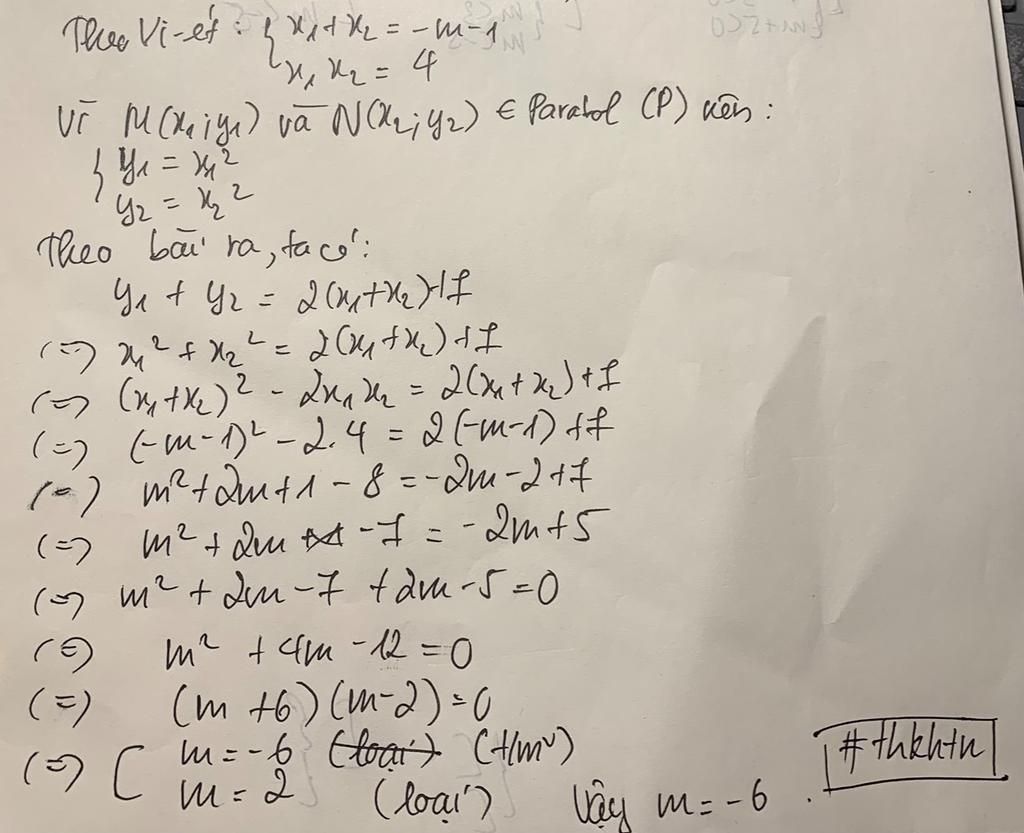 Theo Vi-ét: { x₁+x₂ = -m-1
x₁x₂ = 4
Vì M(x₁;y₁) và N(x₂;y₂) ∈ Parabol (P) nên:
{ y₁ = x₁²
y₂ = x₂²
Theo bài ra, ta có:
y₁ + y₂ = 2(x₁+x₂)+7
(=) x₁² + x₂² = 2(x₁+x₂)+7
(=) (x₁+x₂)² - 2x₁x₂ = 2(x₁+x₂)+7
(=) (-m-1)² - 2.4 = 2(-m-1)+7
(=) m²+2m+1-8 = -2m-2+7
(=) m²+2m-7 = -2m+5
(=) m²+2m-7+2m-5=0
(=) m²+4m-12=0
(=) (m+6)(m-2)=0
(=) [ m=-6 (loại) (t/m)
m=2 (loại) Vậy m=-6.
#thkhtn